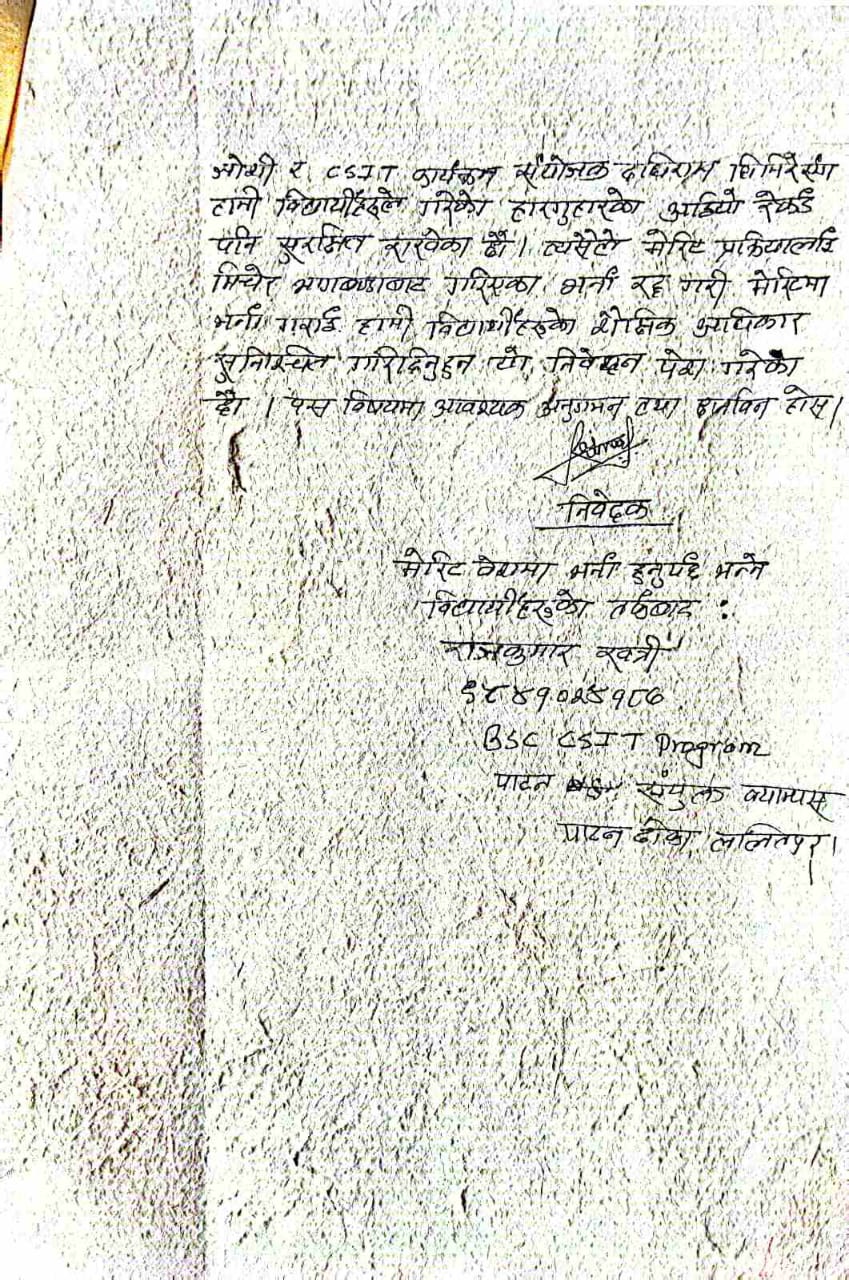 जोशी र CSIT कार्यक्रम संयोजक दधिराम घिमिरेसंग
हामी विद्यार्थीहरुले गरेका हारगुहारका अडियो रेकर्ड
पनि सुरक्षित राखेका छौ । त्यसैले मेरिट प्रक्रियालाई
मिचेर भागबण्डाबाट गरिएका भर्ना रद्द गरी मेरिटमा
भर्ना गराई हामी विद्यार्थीहरुको शैक्षिक अधिकार
सुनिश्चित गरिदिनुहुन यो निवेदन पेश गरेका
छौ । यस विषयमा आवश्यक अनुगमन तथा छानविन होस् ।
निवेदक
मेरिट बेसमा भर्ना हुनुपर्छ भन्ने
विद्यार्थीहरुको तर्फबाट :
राजकुमार खत्री
BSC CSIT Program
पाटन संयुक्त क्याम्पस
पाटन ढोका ललितपुर ।